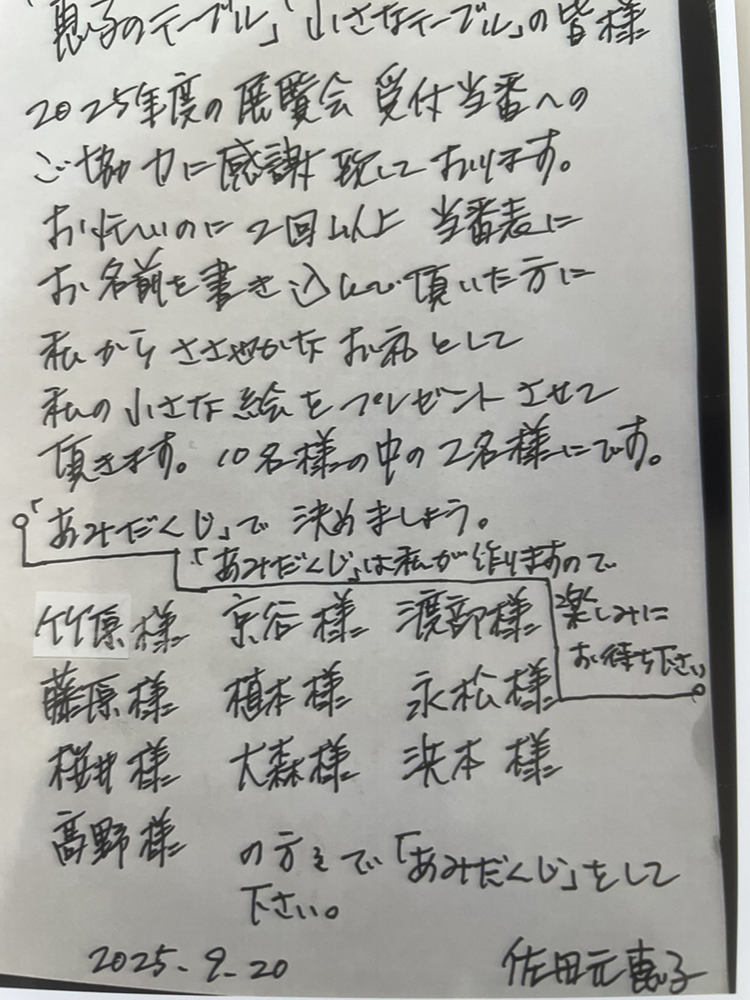 「恵子のテーブル」「小さなテーブル」の皆様
2025年度の展覧会 受付当番への
ご協力に感謝致しております。
お忙しいのに2回以上 当番表に
お名前を書き込んで頂いた方に
私からささやかなお礼として
私の小さな絵をプレゼントさせて
頂きます。10名様の中の2名様にです。
「あみだくじ」で決めましょう。
「あみだくじ」は私が作りますので
楽しみに
お待ち下さい
竹原様 京谷様 渡部様
藤原様 植本様 永松様
桜井様 大森様 浜本様
高野様 の方々で「あみだくじ」をして
下さい。
2025.9.20 佐田元恵子